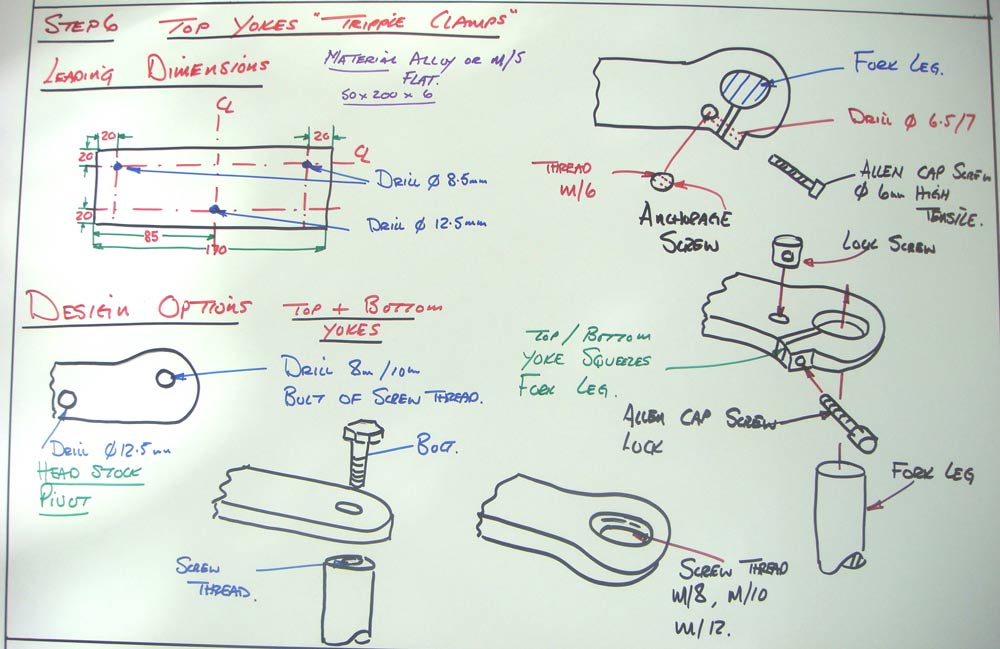 STEP 6 TOP YOKES "TRIPPLE CLAMPS"
LEADING DIMENSIONS
MATERIAL ALLOY OR M/S
FLAT.
50 x 200 x 6
CL
20
20
20
CL
20
85
170
DRILL Ø 8.5mm
DRILL Ø 12.5mm
FORK LEG.
DRILL Ø 6.5/7
THREAD
M/6
ANCHORAGE
SCREW
ALLEN CAP SCREW
Ø 6mm HIGH
TENSILE.
LOCK SCREW
TOP / BOTTOM
YOKE SQUEEZES
FORK LEG.
ALLEN CAP SCREW
LOCK
FORK LEG
DESIGN OPTIONS
TOP + BOTTOM
YOKES
DRILL 8m/10m
BOLT OF SCREW THREAD.
DRILL Ø 12.5mm
HEAD STOCK
PIVOT
BOLT.
SCREW
THREAD.
SCREW THREAD
M/8, M/10
M/12.